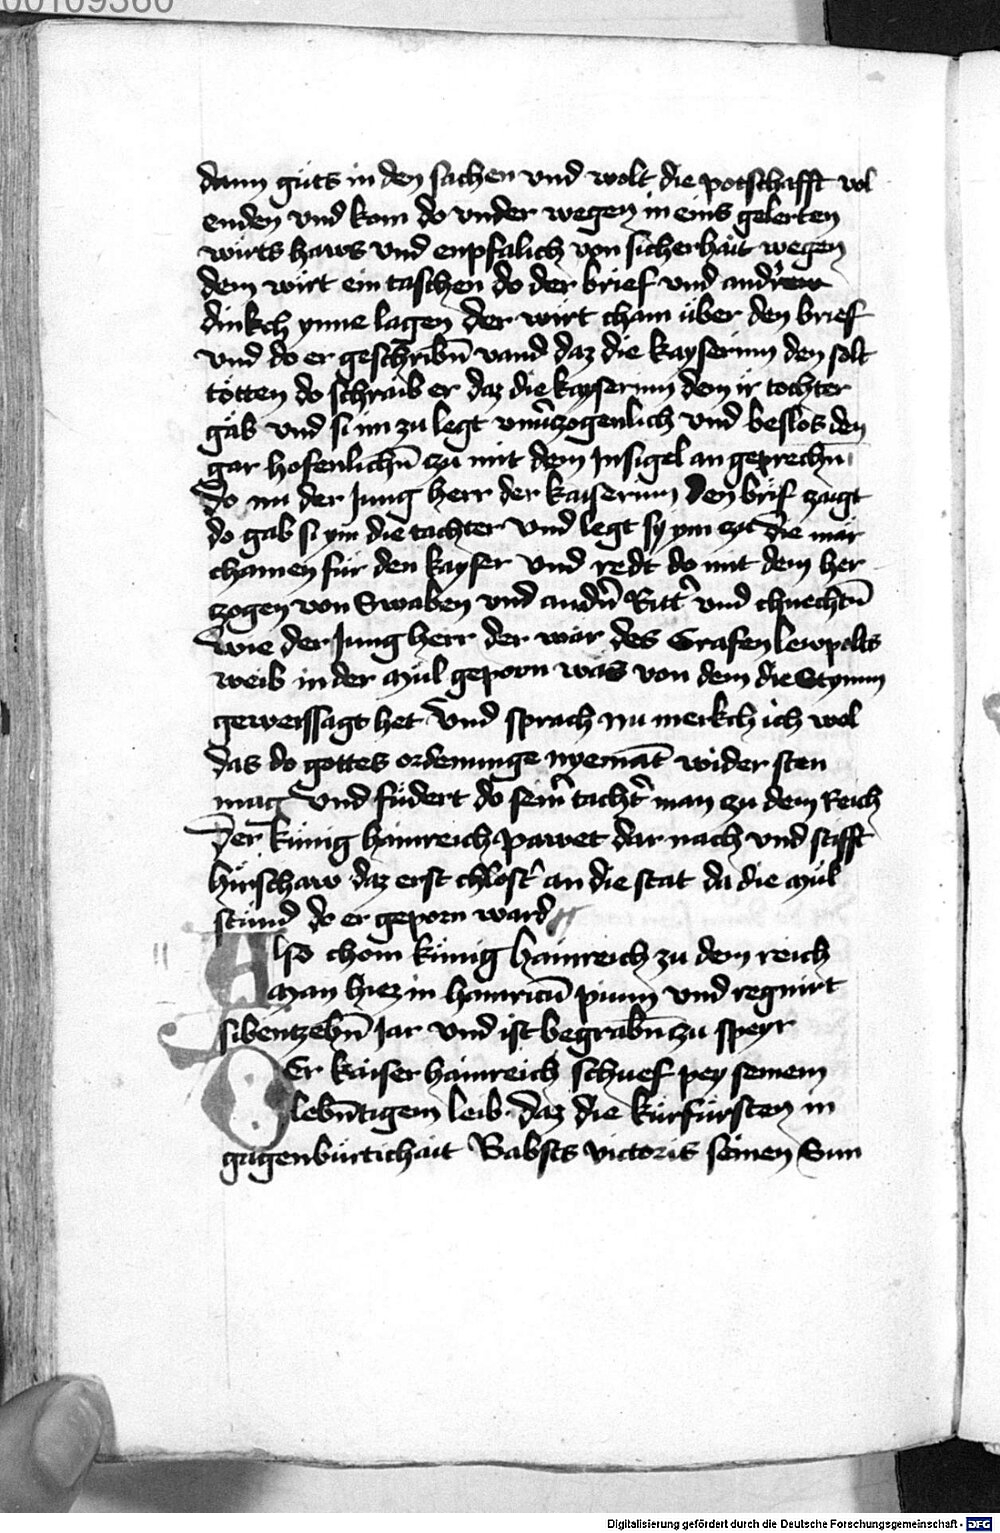 00109360
dann güts in den sachen vnd wolt die potschafft vol
enden vnd kom do vnder wegen in eins gelerten
wirts haws vnd enpfalich von sicherhait wegen
dem wirt ein taschen do der brief vnd andrew
dinkch ynne lagen der wirt cham über den brief
vnd do er geschribn̄ vand daz die kayserinn den solt
tötten do schraib er daz die kayserinn dem ir tochter
gäb vnd si im zu legt vnuerzogenlich vnd beslos den
gar hofenlichn̄ zu mit dem Insigel an geprechn̄
do nu der Jung herr der kaiserinn den brif zaigt
do gab si ym die tachter vnd legt sy ym zu die mär
chamen für den kayser vnd redt do mit dem her
zogen von Swaben vnd andn̄ Ritt̄ vnd chnechtn̄
wie der Jung herr der wär des Grafen lewpolts
weib in der Mül geporn was von dem die Stymm
geweissagt het vnd sprach nu merkch ich wol
das do gottes ordenunge nyemāt wider sten
mag vnd füdert do seinr̄ tacht̄ man zu dem Reich
Der künig hainreich pawet dar nach vnd stifft
hirschaw daz erst chlost̄ an die stat da die Mül
stünd do er geporn ward
Also chom künig hainreich zu dem reich
Man hiez in hainricū pium vnd regnirt
sibentzehn̄ Jar vnd ist begrabn̄ zu speyr
Der kaiser hainreich schuef pey seinem
lebn̄tigem leib daz die kürfürsten in
gägenbürtichait Babsts victoris seinen Sun
Digitalisierung gefördert durch die Deutsche Forschungsgemeinschaft - DFG